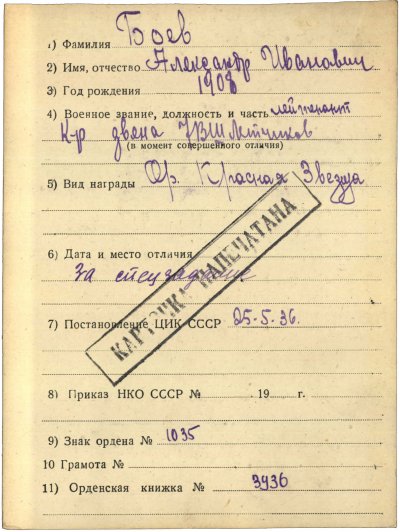 1) Фамилия Боев
2) Имя, отчество Александр Иванович
3) Год рождения 1908
4) Военное звание, должность и часть лейтенант
К-р звена 7ВШ Лётчиков
(в момент совершенного отличия)
5) Вид награды Ор. Красная Звезда
6) Дата и место отличия
За спецзадание
КАРТОЧКА НАПЕЧАТАНА
7) Постановление ЦИК СССР 25-5-36.
8) Приказ НКО СССР № 19 г.
9) Знак ордена № 1035
10 Грамота №
11) Орденская книжка № 3936